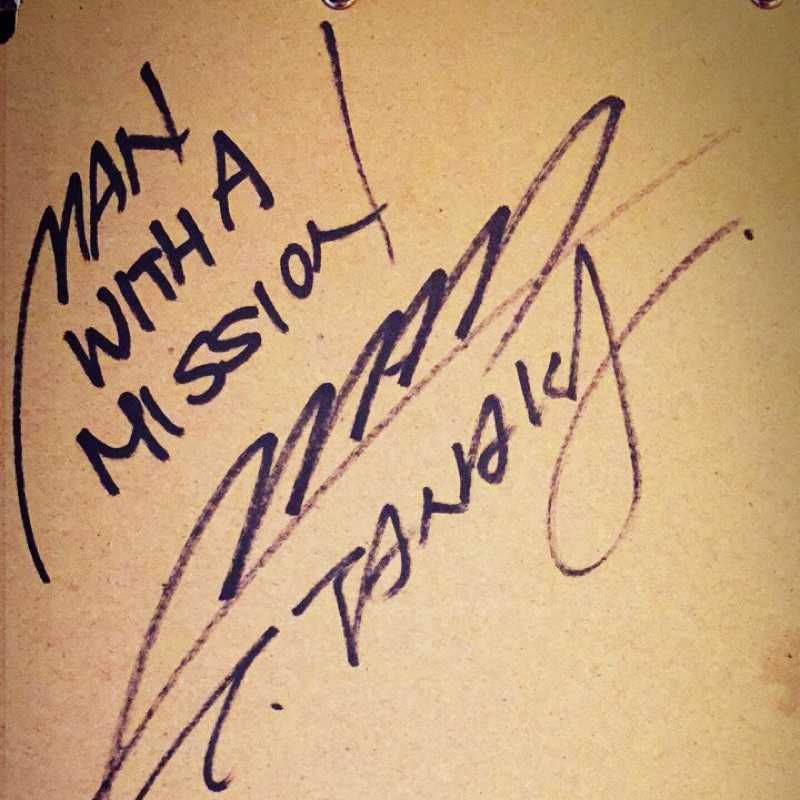 MAN
WITH A
MISSION
T. TANAKA